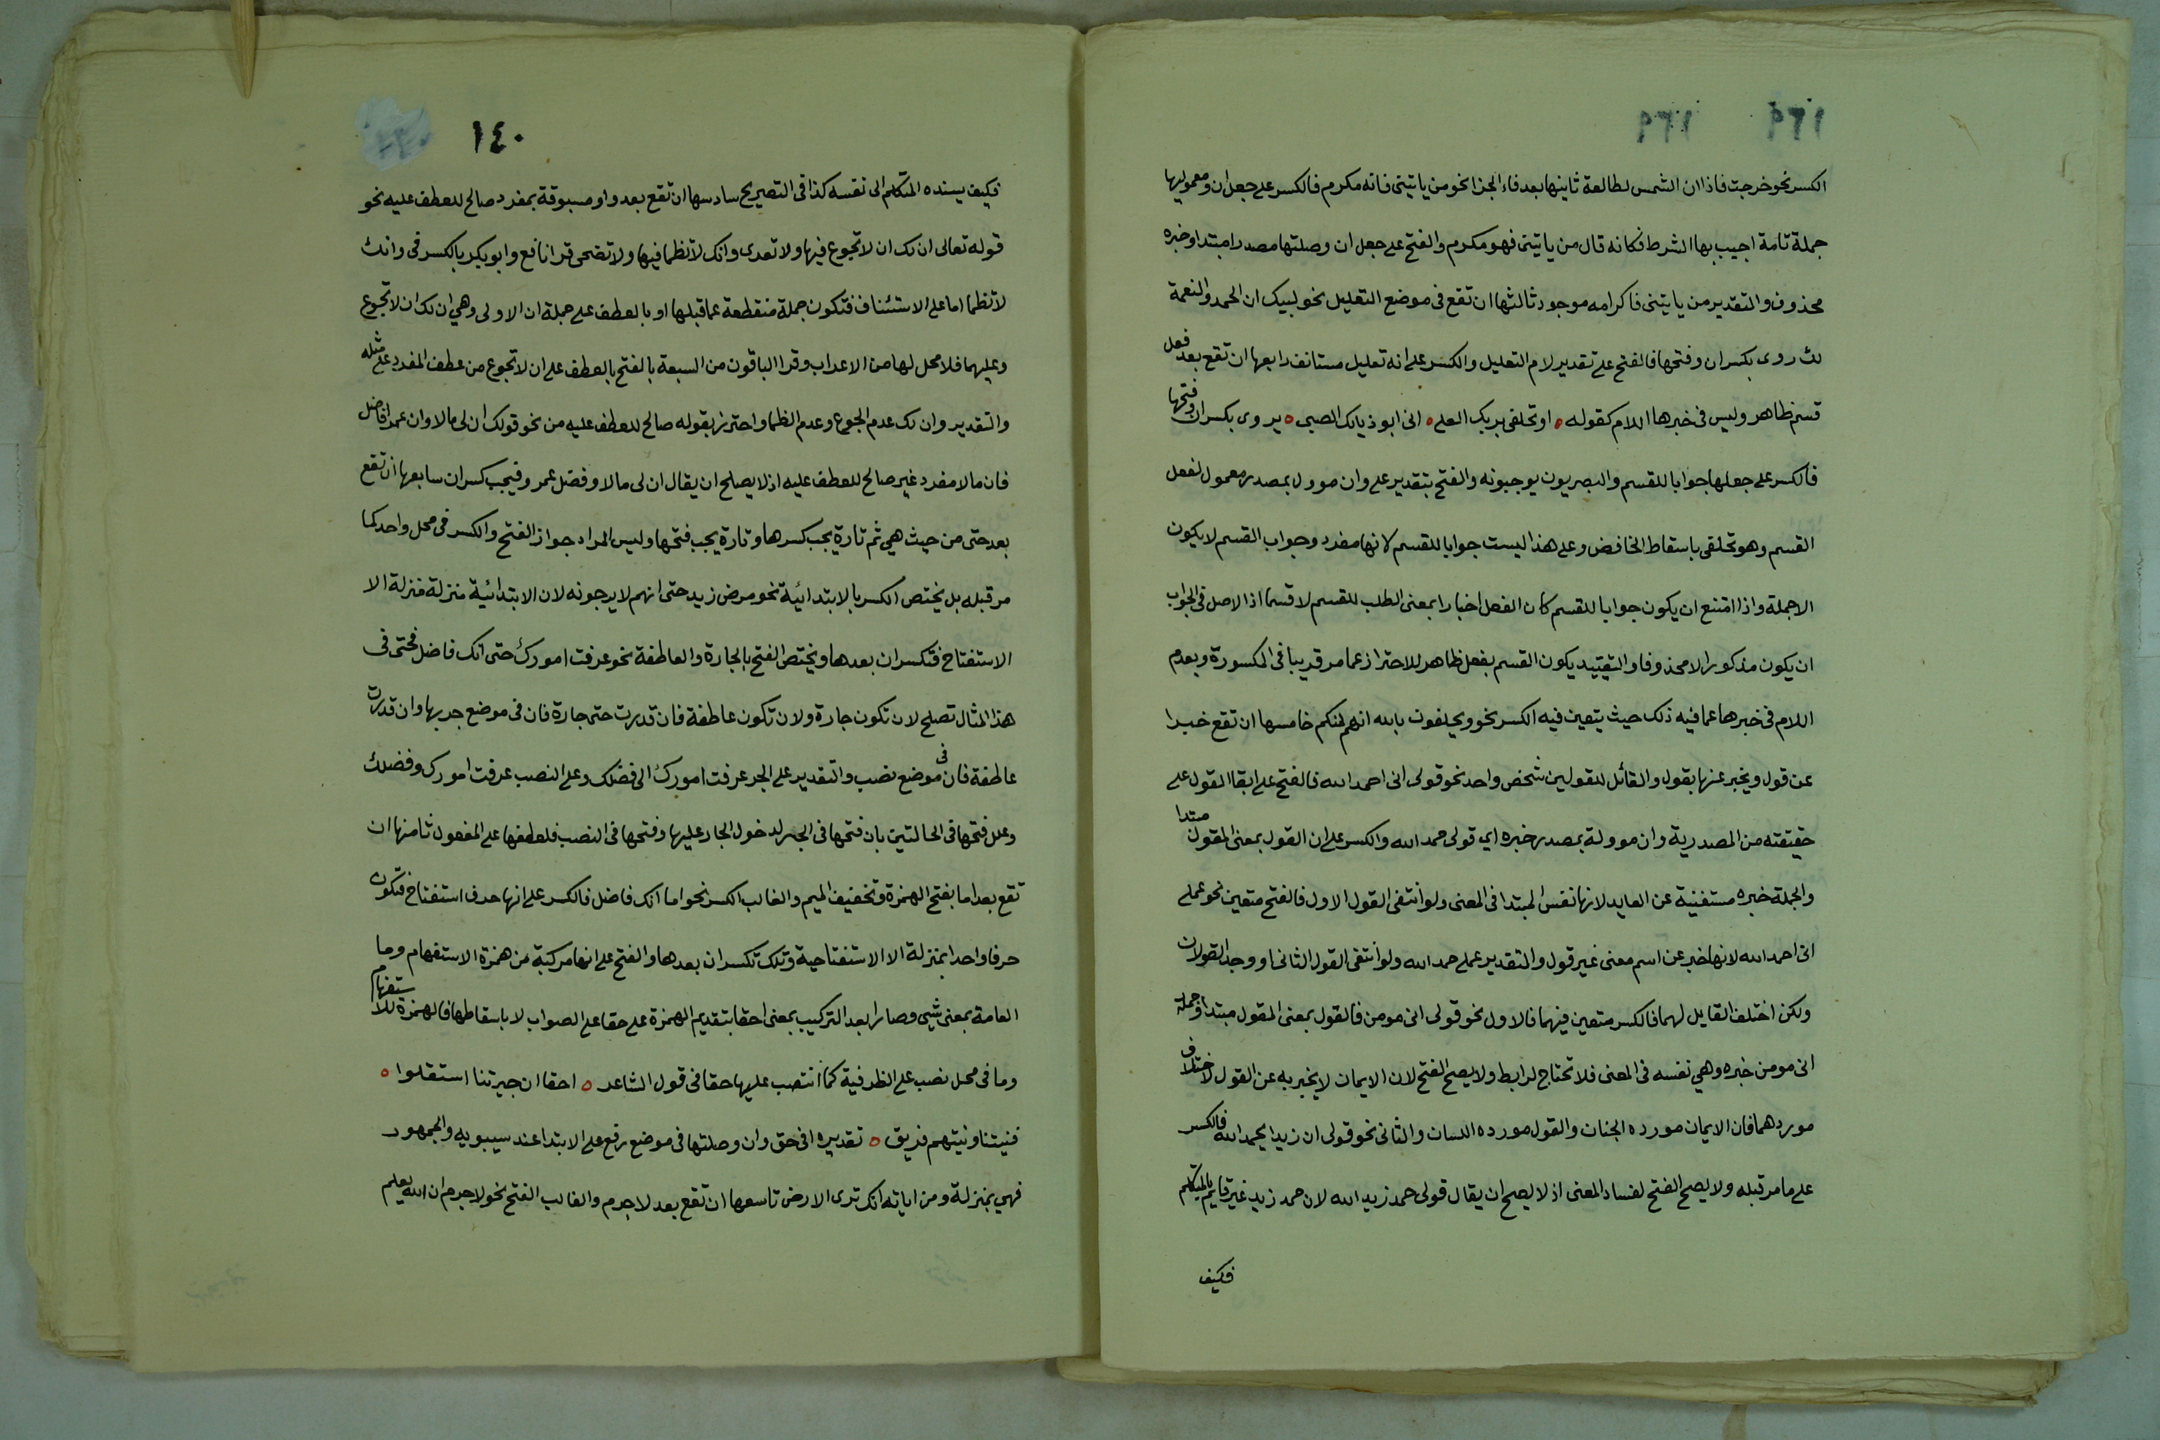 الكسر نحو خرجت فاذا ان الشمس لطالعة ثانيها بعد فاء الجزا نحو من ياتيني فانه مكرم فالكسر على جعل ان ومعموليها
جملة تامة اجيب بها الشرط فكانه قال من ياتيني فهو مكرم والفتح على جعل ان وصلتها مصدرا مبتدا وخبره
محذوف والتقدير من ياتيني فاكرامه موجود ثالثها ان تقع في موضع التعليل نحو لبيك ان الحمد والنعمة
لك روى بكسر ان وفتحها فالفتح على تقدير لام التعليل والكسر على انه تعليل مستانف رابعها ان تقع بعد فعل
قسم ظاهر وليس في خبرها اللام كقوله ه او تحلفي بربك العلي ه اني ابو ذيالك الصبي ه يروى بكسر ان وفتحها
فالكسر على جعلها جوابا للقسم والبصريون يوجبونه والفتح بتقدير على وان موول بمصدر معمول لفعل
القسم وهو تحلفي باسقاط الخافض وعلى هذا ليست جوابا للقسم لانها مفرد وجواب القسم لا يكون
الا جملة واذا امتنع ان يكون جوابا للقسم كان الفعل اخبارا بمعنى الطلب للقسم لا قسما اذ الاصل في الجواب
ان يكون مذكورا لا محذوفا والتقييد بكون القسم بفعل ظاهر للاحتراز عما مر قريبا في المكسورة وبعدم
اللام في خبرها عما فيه ذلك حيث يتعين فيه الكسر نحو ويحلفون بالله انهم لمنكم خامسها ان تقع خبرا
عن قول ويخبر عنها بقول والقائل للقولين شخص واحد نحو قولي اني احمد الله فالفتح على ابقا القول على
حقيقته من المصدرية وان موولة بمصدر خبره اي قولي حمد الله والكسر على ان القول بمعنى المقول مبتدا
والجملة خبره مستغنية عن العايد لانها نفس المبتدا في المعنى ولو انتفى القول الاول فالفتح متعين نحو عملي
اني احمد الله لانها خبر عن اسم معنى غير قول والتقدير عملي حمد الله ولو انتفى القول الثاني او وجد القولان
ولكن اختلف القايل لهما فالكسر متعين فيهما فالاول نحو قولي اني مومن فالقول بمعنى المقول مبتدا وجملة
اني مومن خبره وهي نفسه في المعنى فلا تحتاج لرابط ولا يصح الفتح لان الايمان لا يخبر به عن القول لاختلاف
موردهما فان الايمان مورده الجنان والقول مورده اللسان والثاني نحو قولي ان زيدا يحمد الله فالكسر
على ما مر قبله ولا يصح الفتح لفساد المعنى اذ لا يصح ان يقال قولي حمد زيد الله لان حمد زيد غير قايم بالمتكلم
فكيف
١٤٠
فكيف يسنده المتكلم الى نفسه كذا في التصريح سادسها ان تقع بعد واو مسبوقة بمفرد صالح للعطف عليه نحو
قوله تعالى ان لك ان لا تجوع فيها ولا تعرى وانك لا تظما فيها ولا تضحى قرا نافع وابو بكر بالكسر في وانك
لا تظما اما على الاستئناف فتكون جملة منقطعة عما قبلها او بالعطف على جملة ان الاولى وهي ان لك ان لا تجوع
وعليهما فلا محل لها من الاعراب وقرا الباقون من السبعة بالفتح بالعطف على ان لا تجوع من عطف المفرد على مثله
والتقدير وان لك عدم الجوع وعدم الظما واحترز بقوله صالح للعطف عليه من نحو قولك ان لي مالا وان عمرا فاضل
فان مالا مفرد غير صالح للعطف عليه اذ لا يصلح ان يقال ان لي مالا وفضل عمرو فيجب كسر ان سابعها ان تقع
بعد حتى من حيث هي ثم تارة يجب كسرها وتارة يجب فتحها وليس المراد جواز الفتح والكسر في محل واحد كما
مر قبله بل يختص الكسر بالابتدائية نحو مرض زيد حتى انهم لا يرجونه لان الابتدائية منزلة منزلة الا
الاستفتاح فتكسر ان بعدها ويختص الفتح بالجارة والعاطفة نحو عرفت امورك حتى انك فاضل فحتى في
هذا المثال تصلح لان تكون جارة ولان تكون عاطفة فان قدرت حتى جارة فان في موضع جر بها وان قدرت
عاطفة فان في موضع نصب والتقدير على الجر عرفت امورك الى فضلك وعلى النصب عرفت امورك وفضلك
وعلل فتحها في الحالتين بان فتحها في الجر لدخول الجار عليها وفتحها في النصب فلعطفها على المفعول ثامنها ان
تقع بعد اما بفتح الهمزة وتخفيف الميم والغالب الكسر نحو اما انك فاضل فالكسر على انها حرف استفتاح فتكون
حرفا واحدا بمنزلة الا الاستفتاحية وتلك تكسر ان بعدها والفتح على انها مركبة من همزة الاستفهام وما
العامة بمعنى شيء وصارا بعد التركيب بمعنى احقا بتقديم الهمزة على حقا على الصواب لا باسقاطها فالهمزة للاستفهام
وما في محل نصب على الظرفية كما انتصب عليها حقا في قول الشاعر ه احقا ان جيرتنا استقلوا ه
فنيتنا ونيتهم فريق ه تقديره افي حق وان وصلتها في موضع رفع على الابتدا عند سيبويه والجمهور
فهي بمنزلة ومن اياته انك ترى الارض تاسعها ان تقع بعد لا جرم والغالب الفتح نحو لا جرم ان الله يعلم